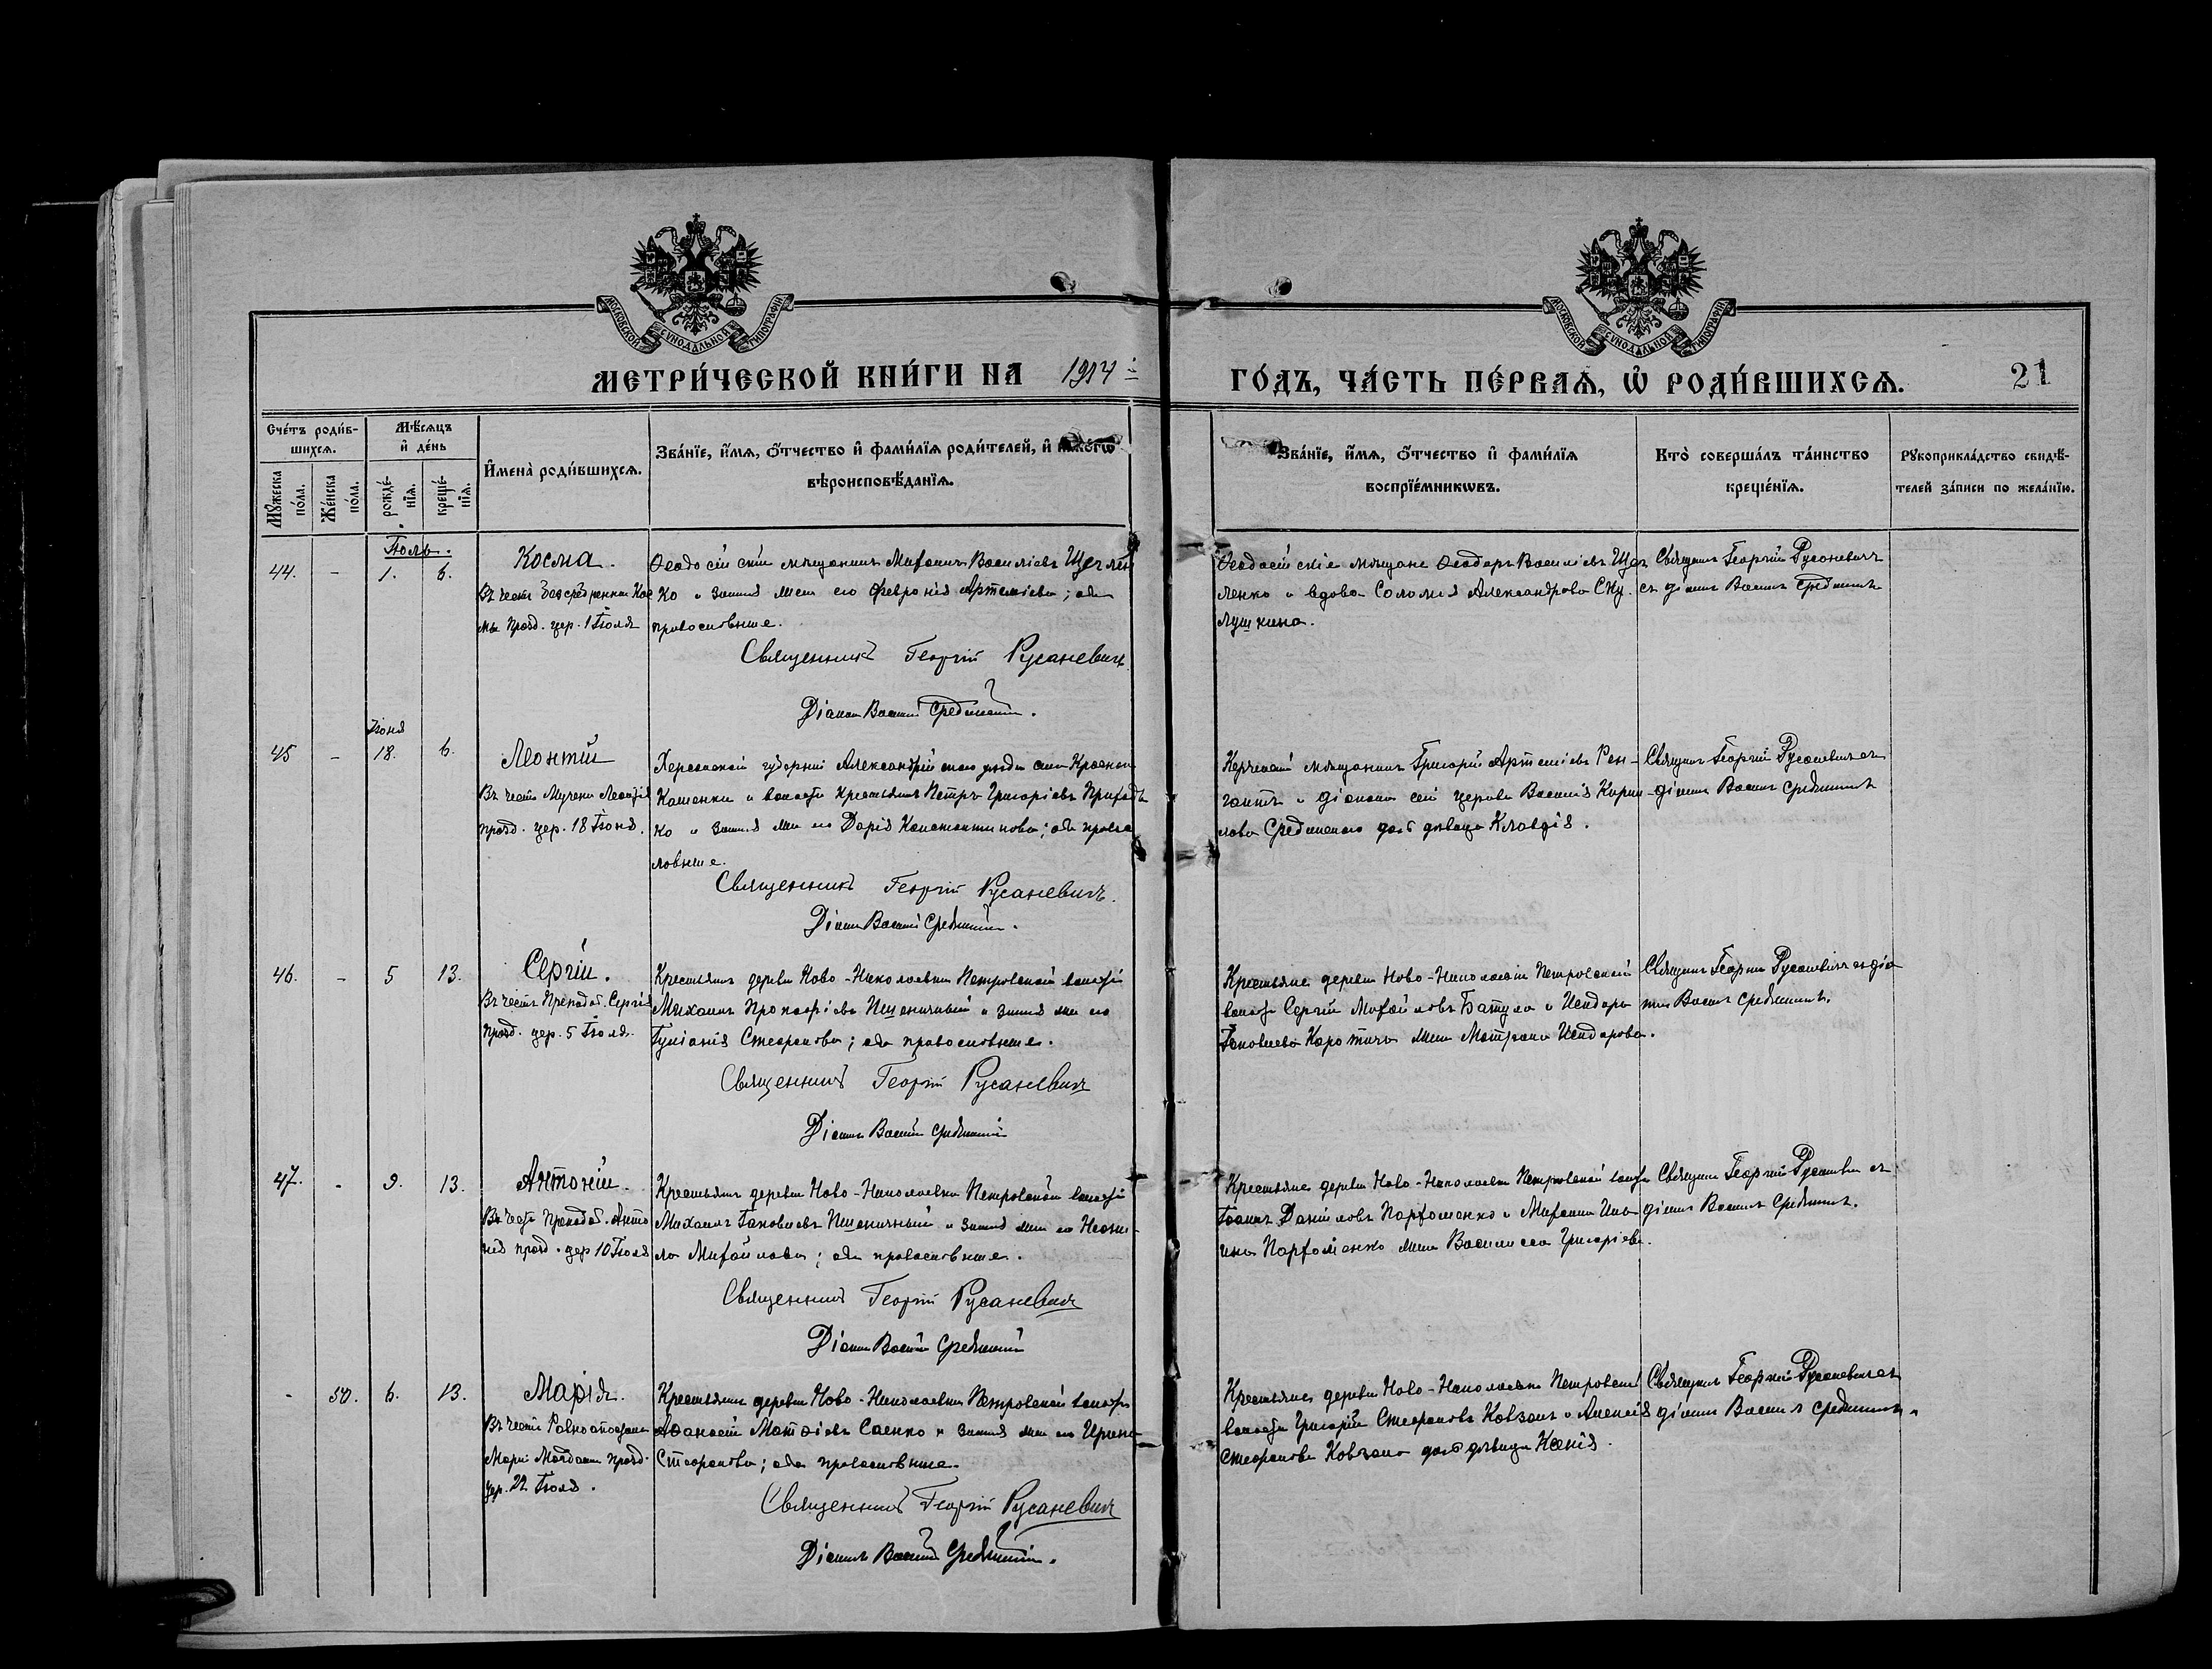 МОСКОВСКОЙ СѴНОДАЛЬНОЙ ТИПОГРАФІИ
МОСКОВСКОЙ СѴНОДАЛЬНОЙ ТИПОГРАФІИ
МЕТРИ́ЧЕСКОЙ КНИ́ГИ НА 1914
ГО́ДЪ, ЧА́СТЬ ПЕ́РВАѦ, Ѡ҆ РОДИ́ВШИХСѦ. 21
Сче́тъ роди́в-
шихсѧ.
Мꙋ́жеска по́ла.
Же́нска по́ла.
Мѣ́сѧцъ
и҆ де́нь
рожде́-
нїѧ.
креще́-
нїѧ.
И҆мена̀ роди́вшихсѧ.
Зва́нїе, и҆́мѧ, ѻ҆́тчество и҆ фами́лїѧ роди́телей, и҆
вѣроисповѣ́данїѧ.
Зва́нїе, и҆́мѧ, ѻ҆́тчество и҆ фами́лїѧ
воспрїе́мникѡвъ.
Кто̀ соверша́лъ та́инство
креще́нїѧ.
Рꙋкоприкла́дство свидѣ́-
телей за́писи по жела́нїю.
Іюль.
44. - 1. 6. Косма.
Въ честь Безсребренника Кос
мы празд. цер. 1 Іюля
Ѳеодосійскій мѣщанинъ Михаилъ Василіевъ Щеглен
ко и законная жена его Феврония Артеміева; оба
православные.
Священникъ Георгій Русаневичъ
Діаконъ Василій Срединскій.
Ѳеодосійскіе мѣщане Ѳеодоръ Василіевъ Щег
ленко и вдова Соломія Александрова
Священникъ Георгій Русаневичъ
съ діакономъ Василіемъ Срединскимъ
Іюня
45 - 18. 6. Леонтій
Въ честь Мученика Леонтія
празд. цер. 18 Іюня.
Херсонской губерніи Александрійскаго уѣзда села Красной
Каменки и волости крестьянинъ Петръ Григоріевъ Приходь
ко и законная жена его Дарія Константинова; оба право
славные.
Священникъ Георгій Русаневичъ.
Діаконъ Василій Срединскій.
Керченскій мѣщанинъ Григорій Артеміевъ
и діакона сей церкви Василія Кирил
лова Срединскаго дочь дѣвица Клавдія.
Священникъ Георгій Русаневичъ съ
діакономъ Василіемъ Срединскимъ
46. - 5 13. Сергій.
Въ честь Преподоб. Сергія
празд. цер. 5 Іюля.
Крестьянинъ деревни Ново-Николаевки Петровской волости
Михаилъ Прокофіевъ Пшеничный и законная жена его
Іуліанія Стефанова; оба православные.
Священникъ Георгій Русаневичъ
Діаконъ Василій Срединскій
Крестьяне деревни Ново-Николаевки Петровской
волости Сергій Михайловъ Батула и Исидора
Іаковлева Коротича жена Матрона Исидорова.
Священникъ Георгій Русаневичъ съ діа
кономъ Василіемъ Срединскимъ.
47. - 9. 13. Антоній.
Въ честь Преподоб. Анто
нія празд. цер 10 Іюля
Крестьянинъ деревни Ново-Николаевки Петровской волости
Михаилъ Іаковлевъ Пшеничный и законная жена его Неони-
ла Михайлова; оба православные.
Священникъ Георгій Русаневичъ
Діаконъ Василій Срединскій
Крестьяне деревни Ново-Николаевки Петровской волости
Іоаннъ Даніиловъ Пархоменко и Михаила
Пархоменко жена Василисса Григоріева.
Священникъ Георгій Русаневичъ съ
діакономъ Василіемъ Срединскимъ.
- 50. 6. 13. Марія.
Въ честь Равноапостольн
Маріи Магдалины празд.
цер. 22 Іюля.
Крестьянинъ деревни Ново-Николаевки Петровской волости
Аѳанасій Матѳіевъ Саенко и законная жена его Ирина
Стефанова; оба православные.
Священникъ Георгій Русаневичъ
Діаконъ Василій Срединскій.
Крестьяне деревни Ново-Николаевки Петровской
волости Григорій Стефановъ Ковзанъ и Алексія
Стефанова Ковзана дочь дѣвица Ксенія.
Священникъ Георгій Русаневичъ съ
діакономъ Василіемъ Срединскимъ.